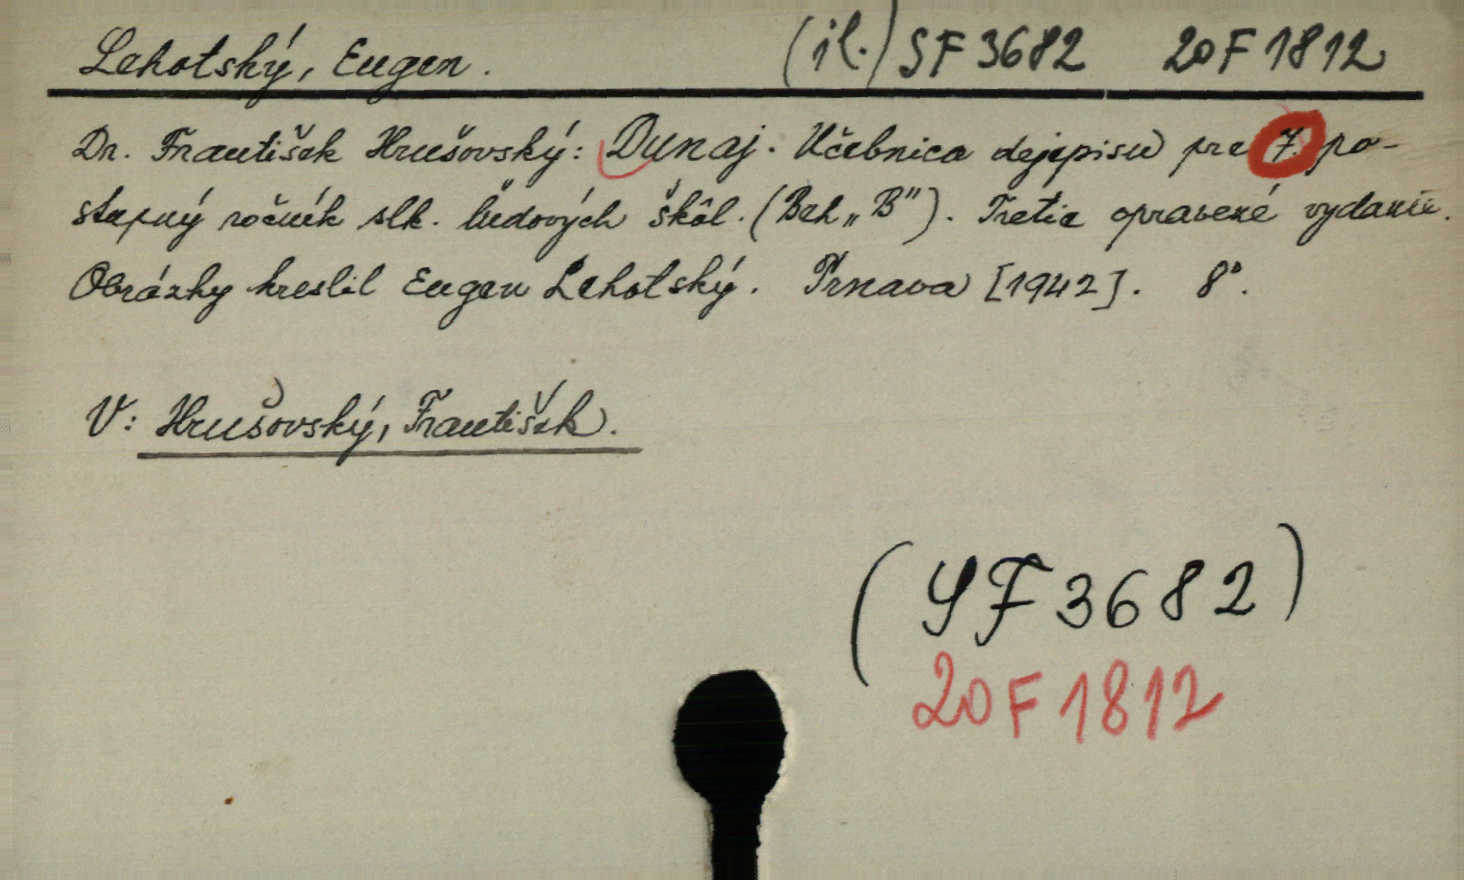 Lehotský, Eugen. (il.) SF 3682 20 F 1812
Dr. František Hrušovský: Dunaj. Učebnica dejepisu pre 7. po-
stupný ročník slk. ľudových škôl. (Beh „B"). Tretie opravené vydanie.
Obrázky kreslil Eugen Lehotský. Trnava [1942]. 8°.
V: Hrušovský, František.
(SF 3682)
20 F 1812